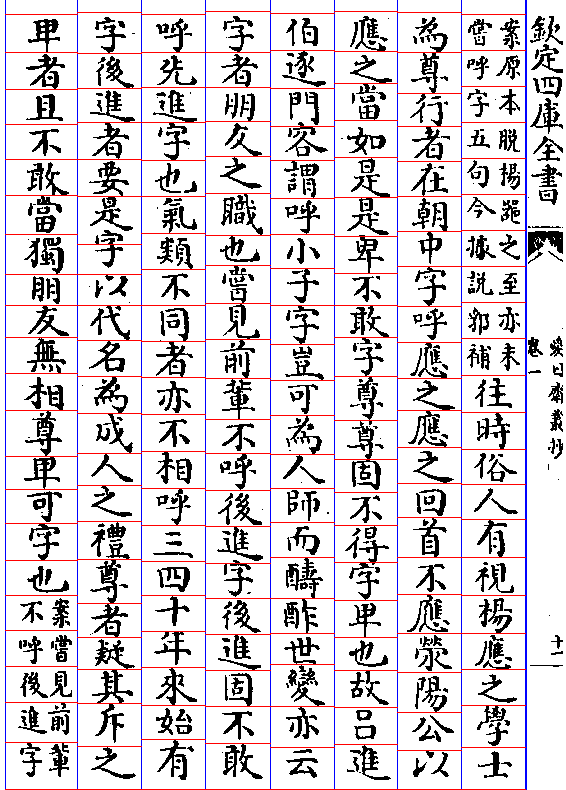 欽定四庫全書
愛日齋叢抄
卷一
案原本脱楊之至亦未
嘗呼字五句今據説郛補
往時俗人有視楊應之學士
為尊行者在朝中字呼應之應之回首不應滎陽公以
應之當如是是卑不敢字尊尊固不得字卑也故吕進
伯逐門客謂呼小子字豈可為人師而醻酢世變亦云
字者朋友之職也嘗見前輩不呼後進字後進固不敢
呼先進字也氣類不同者亦不相呼三四十年來始有
字後進者要是字以代名為成人之禮尊者疑其斥之
卑者且不敢當獨朋友無相尊卑可字也
案嘗見前輩
不呼後進字